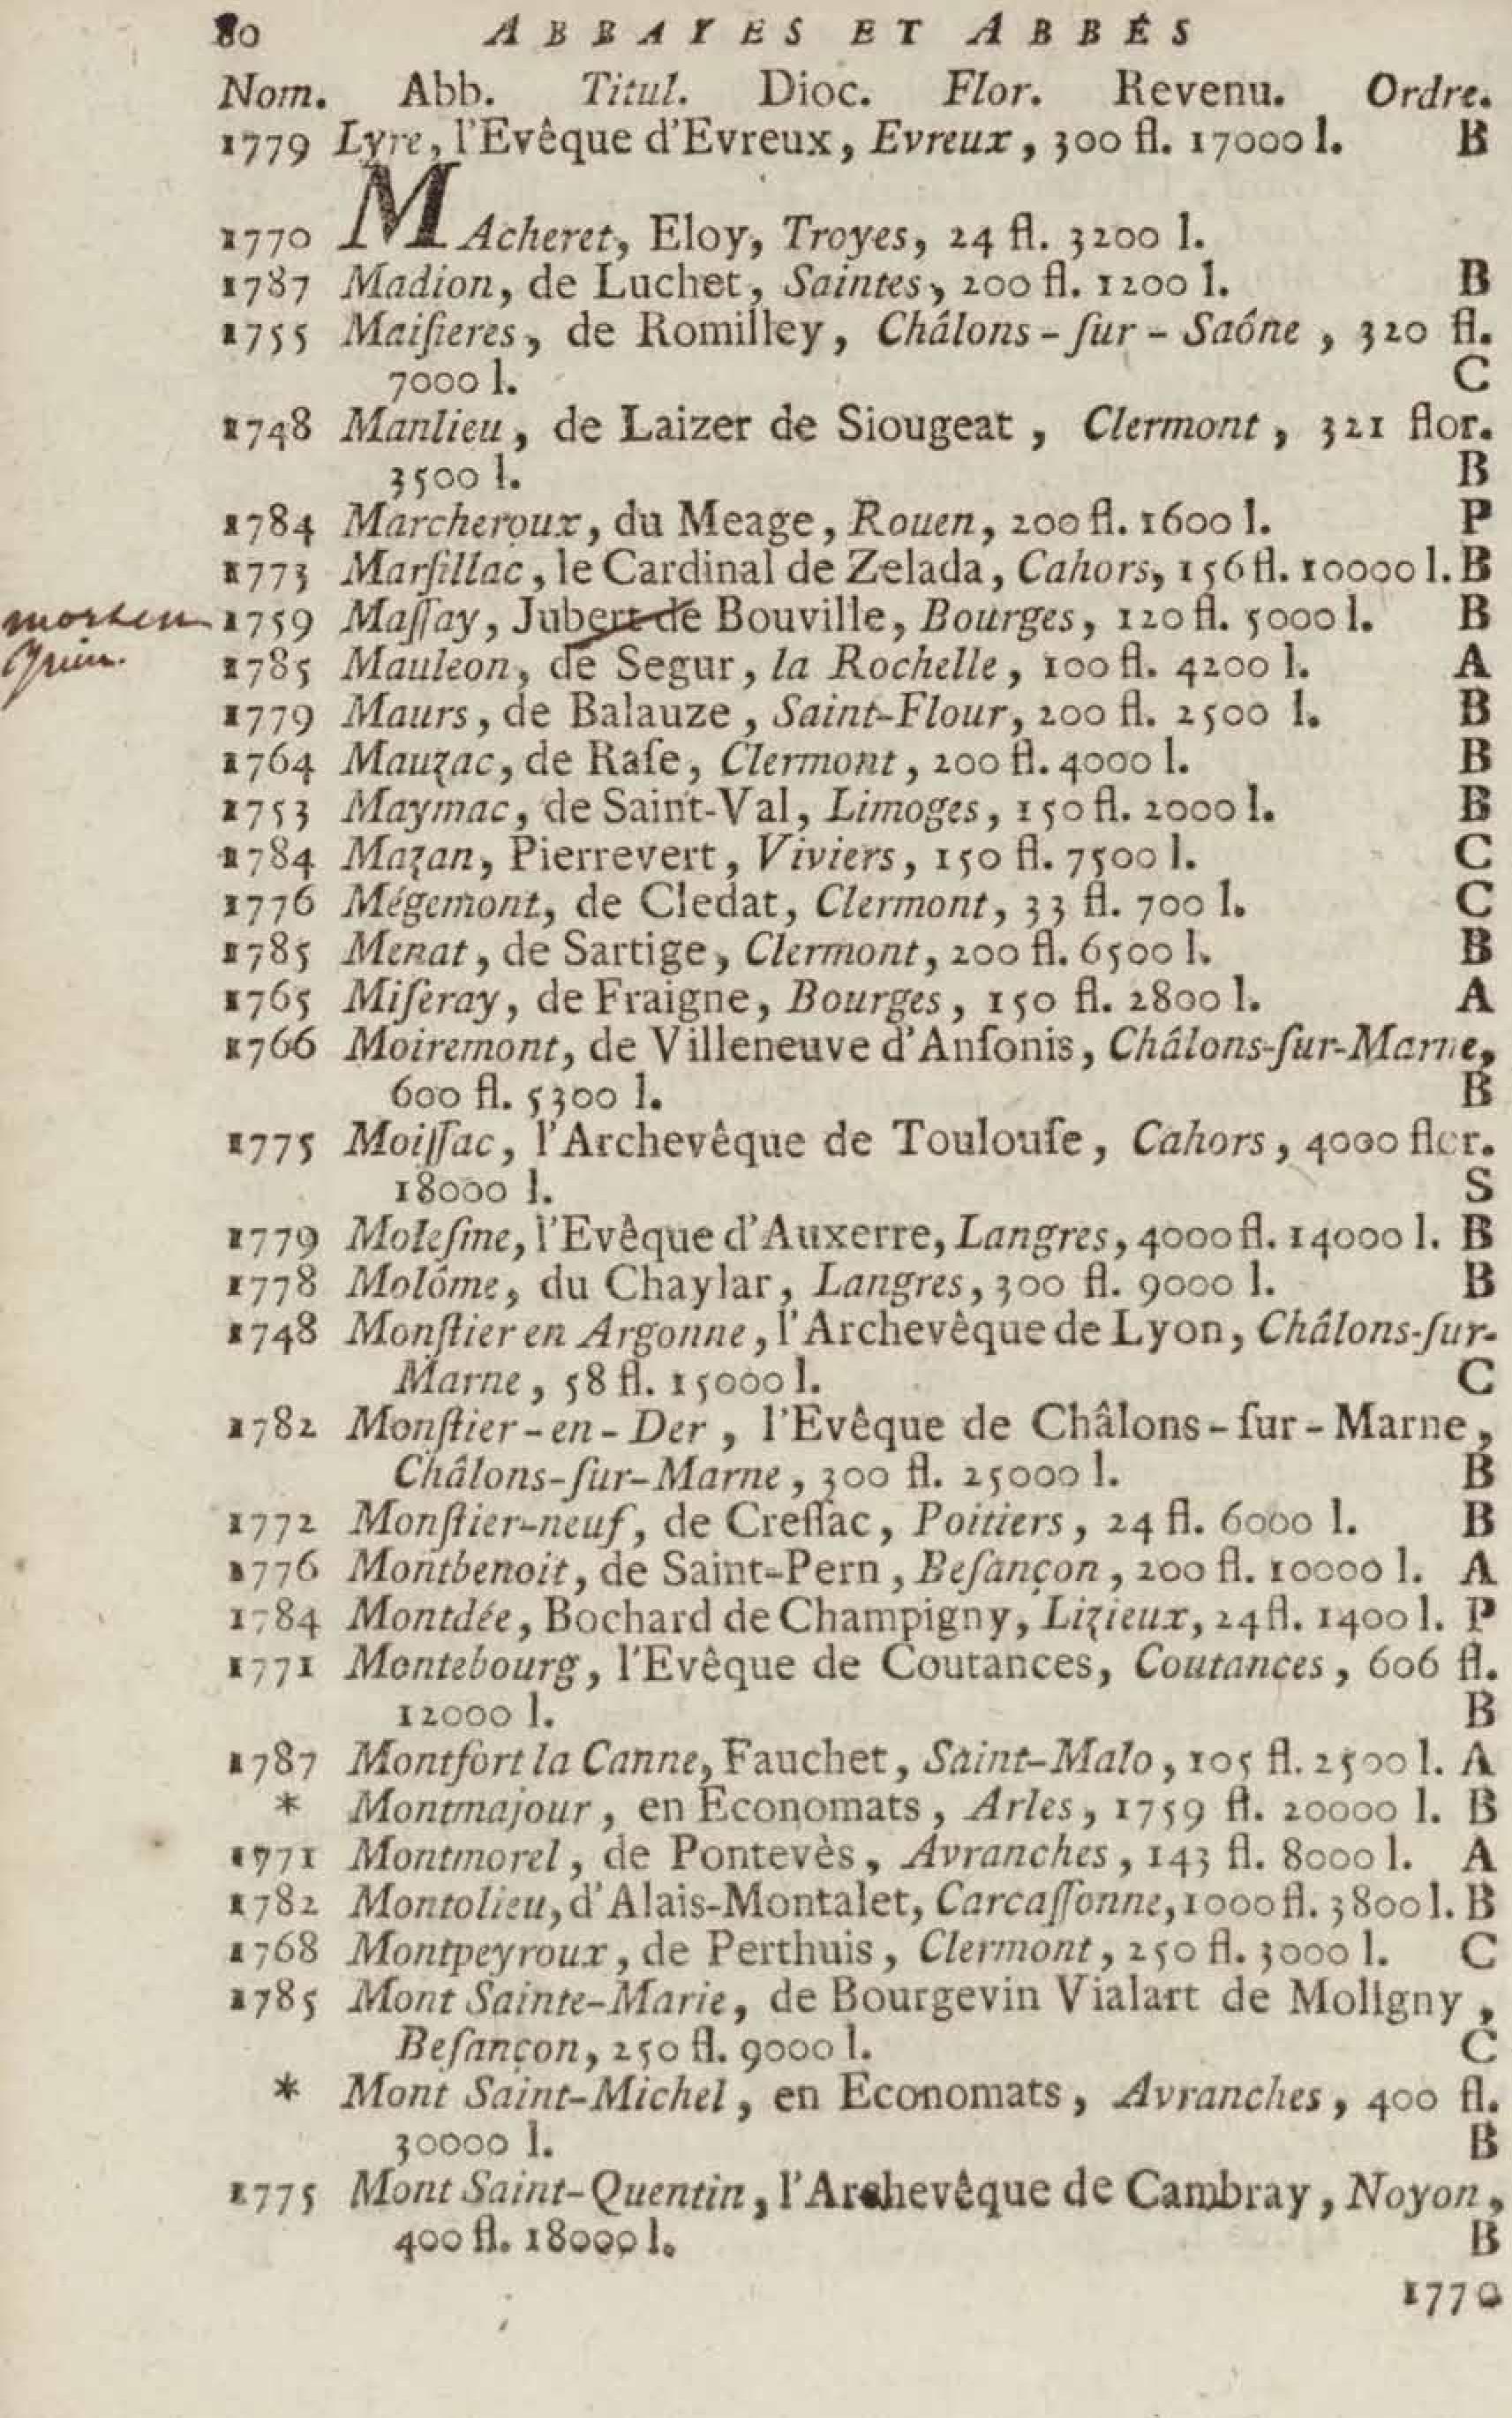 80 ABBAYES ET ABBÉS
Nom. Abb. Titul. Dioc. Flor. Revenu. Ordre.
1779 Lyre, l'Evêque d'Evreux, Evreux, 300 fl. 17000 l. B
1770 MAcheret, Eloy, Troyes, 24 fl. 3200 l.
1787 Madion, de Luchet, Saintes, 200 fl. 1200 l. B
1755 Maiſieres, de Romilley, Châlons-ſur-Saône, 320 fl.
7000 l. C
1748 Manlieu, de Laizer de Siougeat, Clermont, 321 flor.
3500 l. B
1784 Marcheroux, du Meage, Rouen, 200 fl. 1600 l. P
1773 Marſillac, le Cardinal de Zelada, Cahors, 156 fl. 10000 l. B
1759 Maſſay, Jubert de Bouville, Bourges, 120 fl. 5000 l. B
1785 Mauleon, de Segur, la Rochelle, 100 fl. 4200 l. A
1779 Maurs, de Balauze, Saint-Flour, 200 fl. 2500 l. B
1764 Mauzac, de Raſe, Clermont, 200 fl. 4000 l. B
1753 Maymac, de Saint-Val, Limoges, 150 fl. 2000 l. B
1784 Mazan, Pierrevert, Viviers, 150 fl. 7500 l. C
1776 Mégemont, de Cledat, Clermont, 33 fl. 700 l. C
1785 Menat, de Sartige, Clermont, 200 fl. 6500 l. B
1765 Miſeray, de Fraigne, Bourges, 150 fl. 2800 l. A
1766 Moiremont, de Villeneuve d'Anſonis, Châlons-ſur-Marne,
600 fl. 5300 l. B
1775 Moiſſac, l'Archevêque de Toulouſe, Cahors, 4000 flor.
18000 l. S
1779 Moleſme, l'Evêque d'Auxerre, Langres, 4000 fl. 14000 l. B
1778 Molôme, du Chaylar, Langres, 300 fl. 9000 l. B
1748 Monſtier en Argonne, l'Archevêque de Lyon, Châlons-ſur-
Marne, 58 fl. 15000 l. C
1782 Monſtier-en-Der, l'Evêque de Châlons-ſur-Marne,
Châlons-ſur-Marne, 300 fl. 25000 l. B
1772 Monſtier-neuf, de Creſſac, Poitiers, 24 fl. 6000 l. B
1776 Montbenoit, de Saint-Pern, Beſançon, 200 fl. 10000 l. A
1784 Montdée, Bochard de Champigny, Lizieux, 24 fl. 1400 l. P
1771 Montebourg, l'Evêque de Coutances, Coutances, 606 fl.
12000 l. B
1787 Montfort la Canne, Fauchet, Saint-Malo, 105 fl. 2500 l. A
* Montmajour, en Economats, Arles, 1759 fl. 20000 l. B
1771 Montmorel, de Pontevès, Avranches, 143 fl. 8000 l. A
1782 Montolieu, d'Alais-Montalet, Carcaſſonne, 1000 fl. 3800 l. B
1768 Montpeyroux, de Perthuis, Clermont, 250 fl. 3000 l. C
1785 Mont Sainte-Marie, de Bourgevin Vialart de Moligny,
Beſançon, 250 fl. 9000 l. C
* Mont Saint-Michel, en Economats, Avranches, 400 fl.
30000 l. B
1775 Mont Saint-Quentin, l'Archevêque de Cambray, Noyon,
400 fl. 18000 l. B
1770